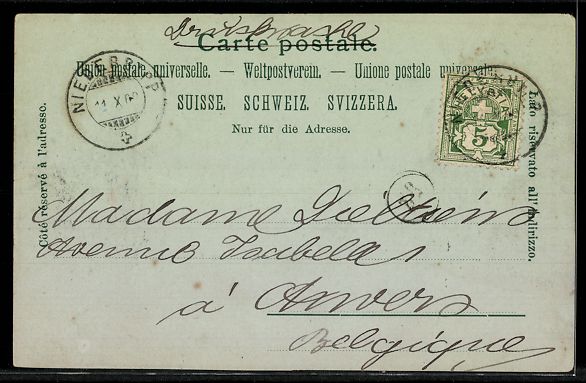 Drucksache
Carte postale.
Union postale universelle. — Weltpostverein. — Unione postale universale.
SUISSE. SCHWEIZ. SVIZZERA.
Nur für die Adresse.
Côté réservé à l'adresse.
Lato riservato all'indirizzo.
5
Madame
Avenue Isabelle
à Anvers
Belgique